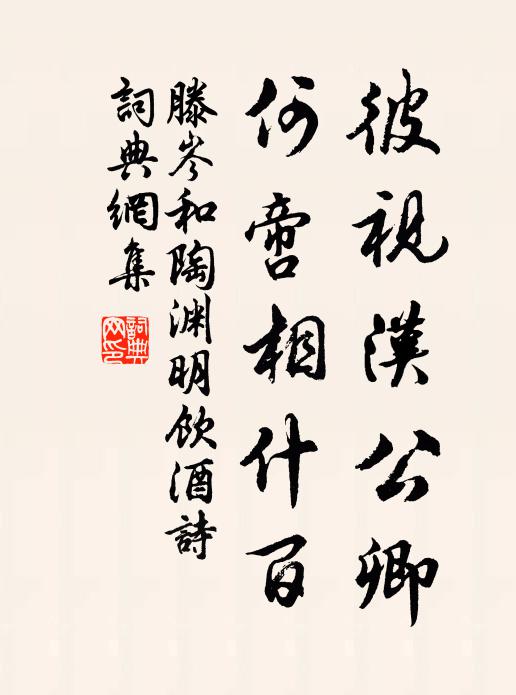 彼視漢公卿
何啻相什百
滕岑和陶淵明飲酒詩
詞典網集
詞典網印